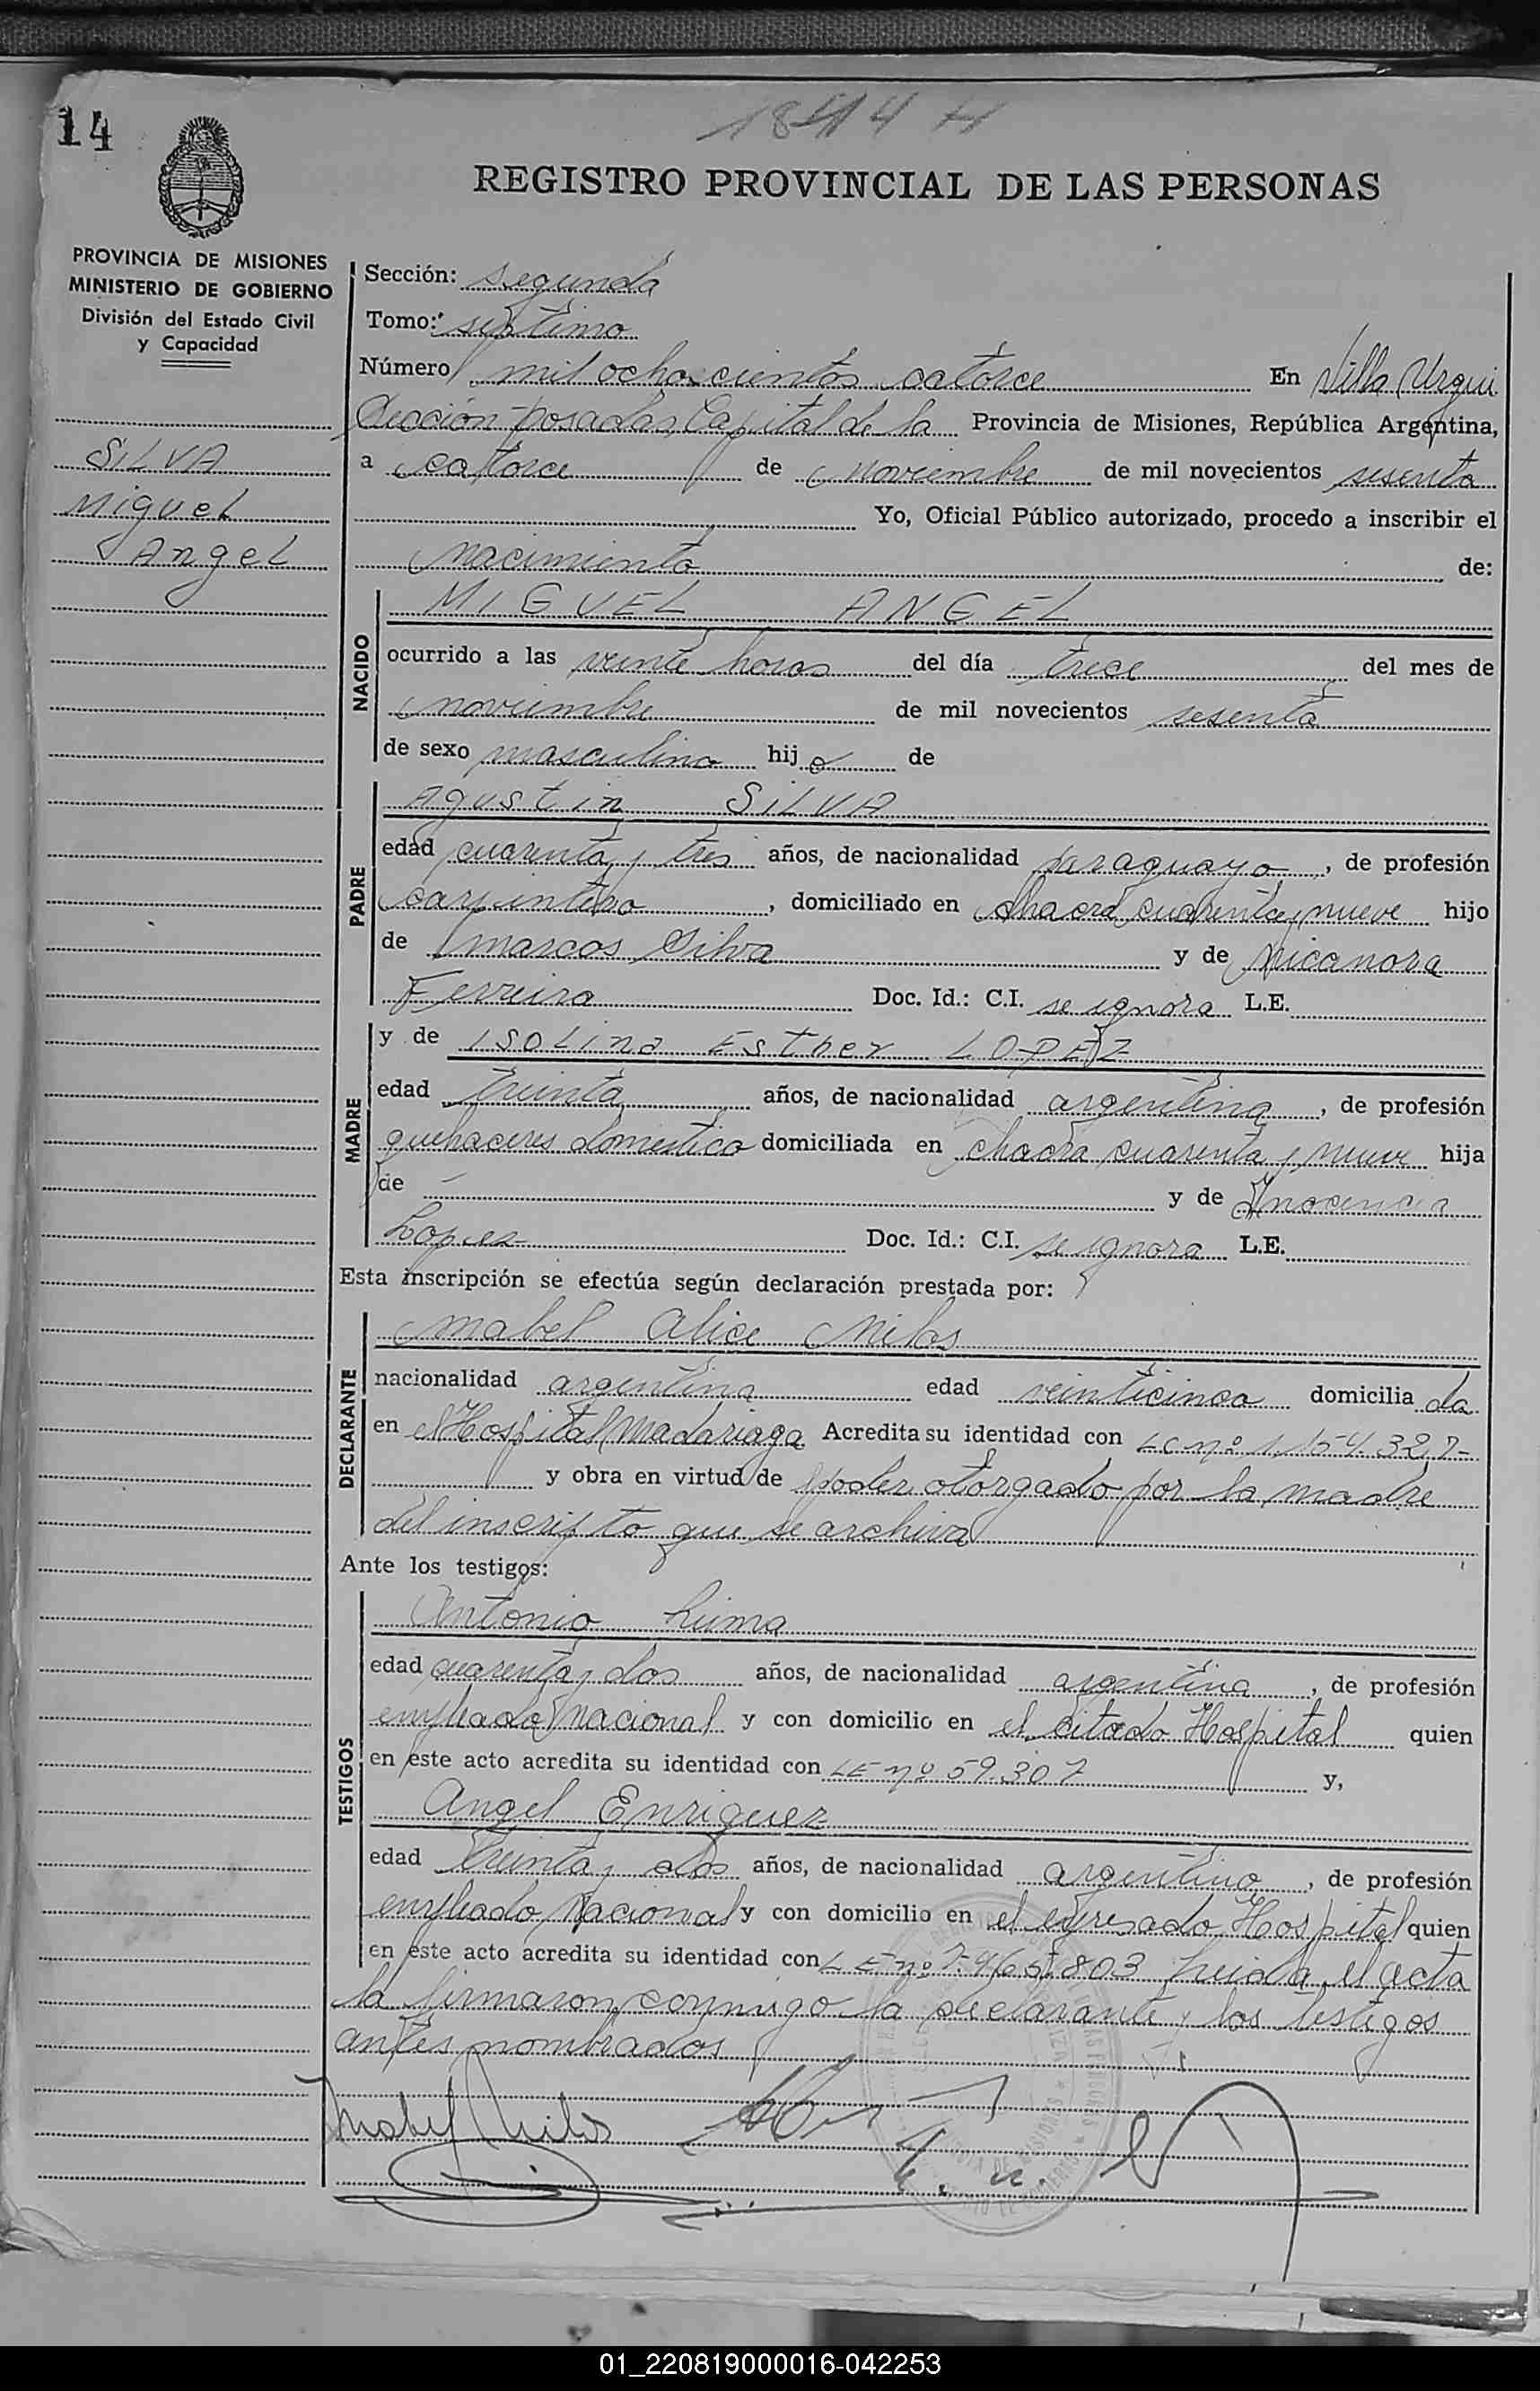 14
1814 H
REGISTRO PROVINCIAL DE LAS PERSONAS
PROVINCIA DE MISIONES
MINISTERIO DE GOBIERNO
División del Estado Civil
y Capacidad
SILVA
Miguel
Angel
Sección: segunda
Tomo: septimo
Número mil ochocientos catorce En Villa Urqui
Sección Posadas, Capital de la Provincia de Misiones, República Argentina,
a catorce de noviembre de mil novecientos sesenta
Yo, Oficial Público autorizado, procedo a inscribir el
Nacimiento de:
NACIDO
MIGUEL ANGEL
ocurrido a las veinte horas del día trece del mes de
noviembre de mil novecientos sesenta
de sexo masculino hijo de
PADRE
Agustin SILVA
edad cuarenta y tres años, de nacionalidad paraguayo, de profesión
carpintero, domiciliado en chacra cuarenta y nueve hijo
de Marcos Silva y de Nicanora
Ferreira Doc. Id.: C.I. se ignora L.E.
MADRE
y de ISOLINA Esther LOPEZ
edad treinta años, de nacionalidad argentina, de profesión
quehaceres domestico domiciliada en chacra cuarenta y nueve hija
de - y de Inocencia
Lopez Doc. Id.: C.I. se ignora L.E.
Esta inscripción se efectúa según declaración prestada por:
DECLARANTE
Mabel Alice Milos
nacionalidad argentina edad veinticinco domiciliada
en el Hospital Madariaga Acredita su identidad con LC nº 1.154.327-
y obra en virtud de poder otorgado por la madre
del inscripto que se archiva
Ante los testigos:
TESTIGOS
Antonio Luima
edad cuarenta y dos años, de nacionalidad argentina, de profesión
empleado Nacional y con domicilio en el citado Hospital quien
en este acto acredita su identidad con LE nº 59.307 y,
Angel Enriquez
edad treinta y dos años, de nacionalidad argentino, de profesión
empleado Nacional y con domicilio en el expresado Hospital quien
en este acto acredita su identidad con LE nº 7.465.803 Leida el acta
la firmaron conmigo la declarante y los testigos
antes nombrados
Mabel Milos
01_220819000016-042253